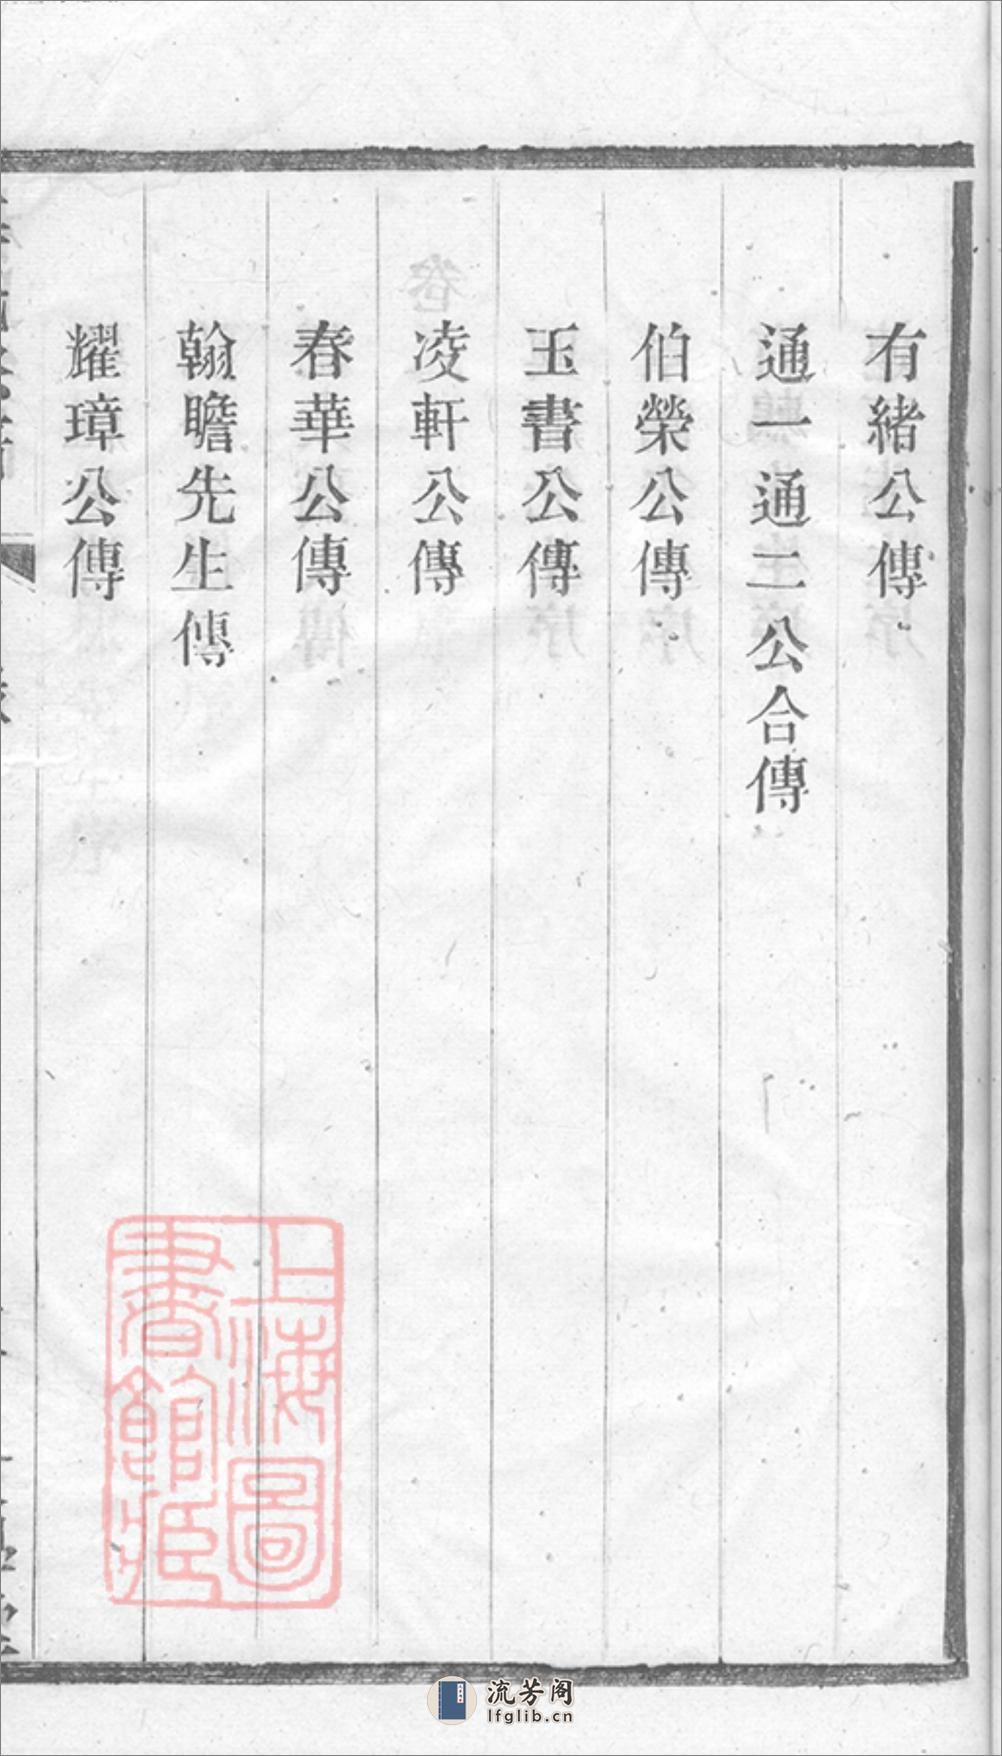 有緒公傳
通一通二公合傳
伯榮公傳
玉書公傳
凌軒公傳
春華公傳
翰瞻先生傳
耀璋公傳
上海圖
書館藏
流芳阁
lfglib.cn